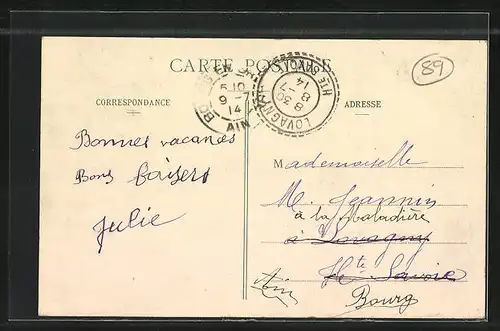 CARTE POSTALE
89
BOURG EN BRESSE
5 10
9 - 7
14
AIN
LOVAGNY
8 30
8 - 7
14
HTE SAVOIE
CORRESPONDANCE
ADRESSE
Bonnes vacances
Bons baisers
Julie
Mademoiselle
M. Jeannin
à la Maladière
à Lovagny
Hte Savoie
Ain
Bourg